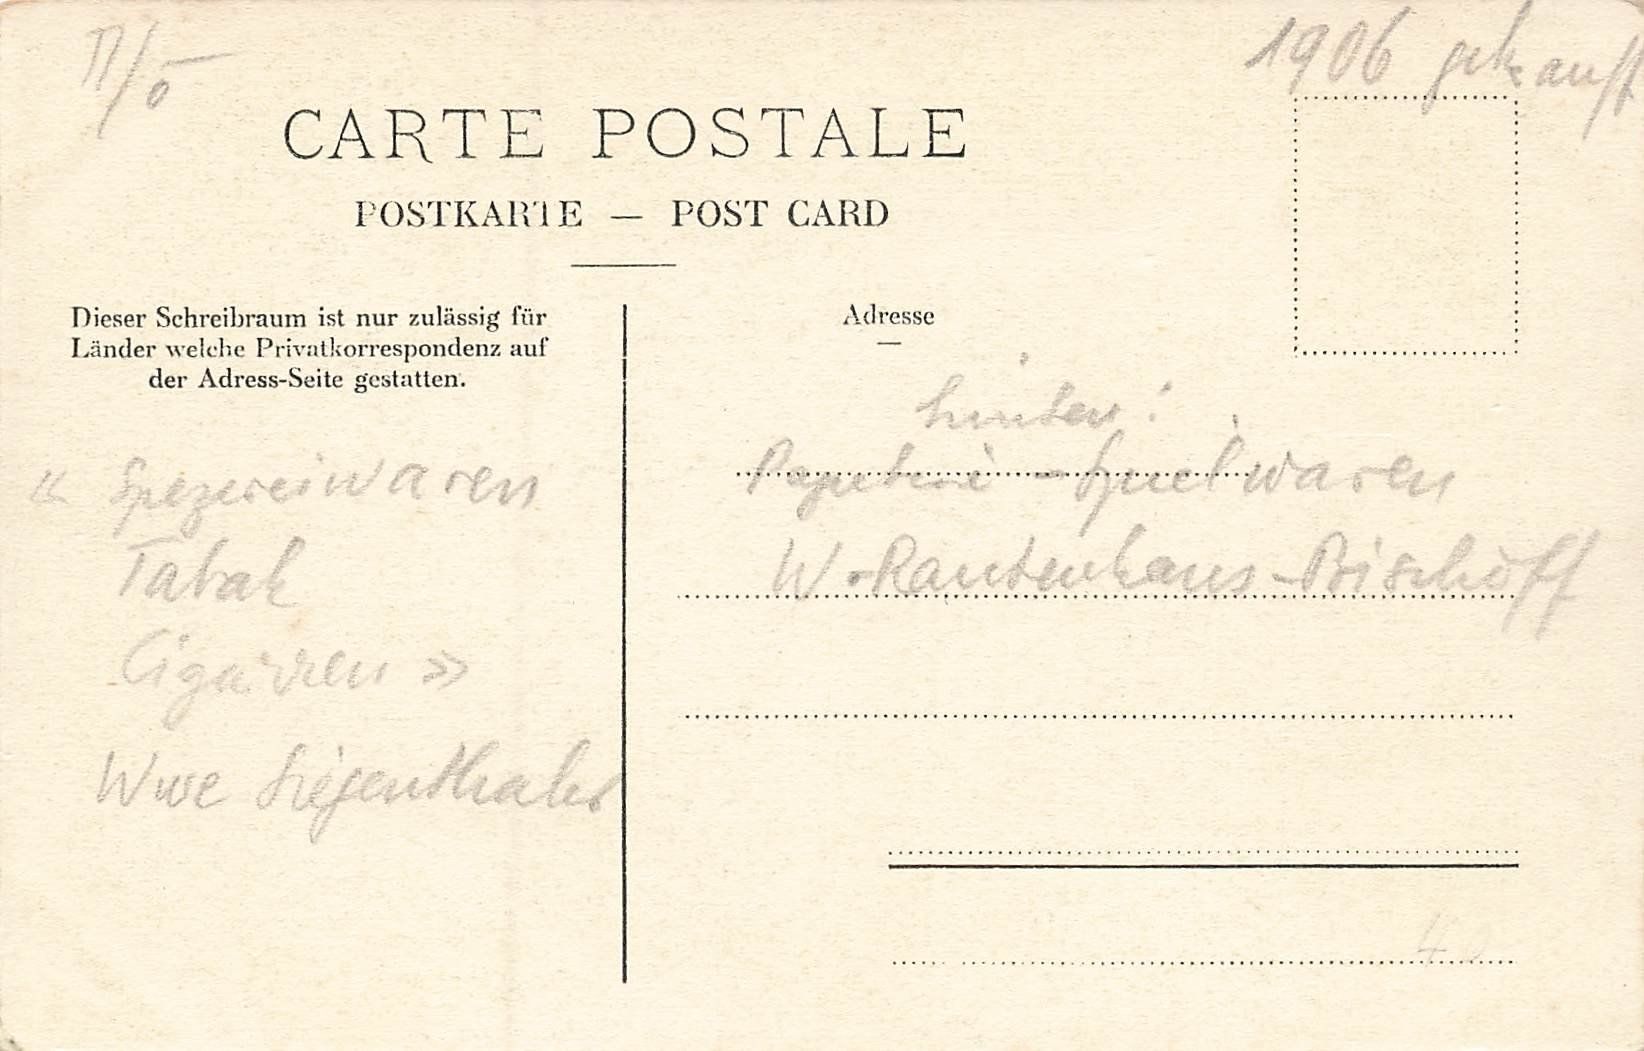 1906 gekauft
CARTE POSTALE
POSTKARTE — POST CARD
Dieser Schreibraum ist nur zulässig für
Länder welche Privatkorrespondenz auf
der Adress-Seite gestatten.
« Spezereiwaren
Tabak
Cigarren »
Wwe Siegenthaler
Adresse
hinten:
Papeterie - Spielwaren
W. Rautenhaus-Bischoff